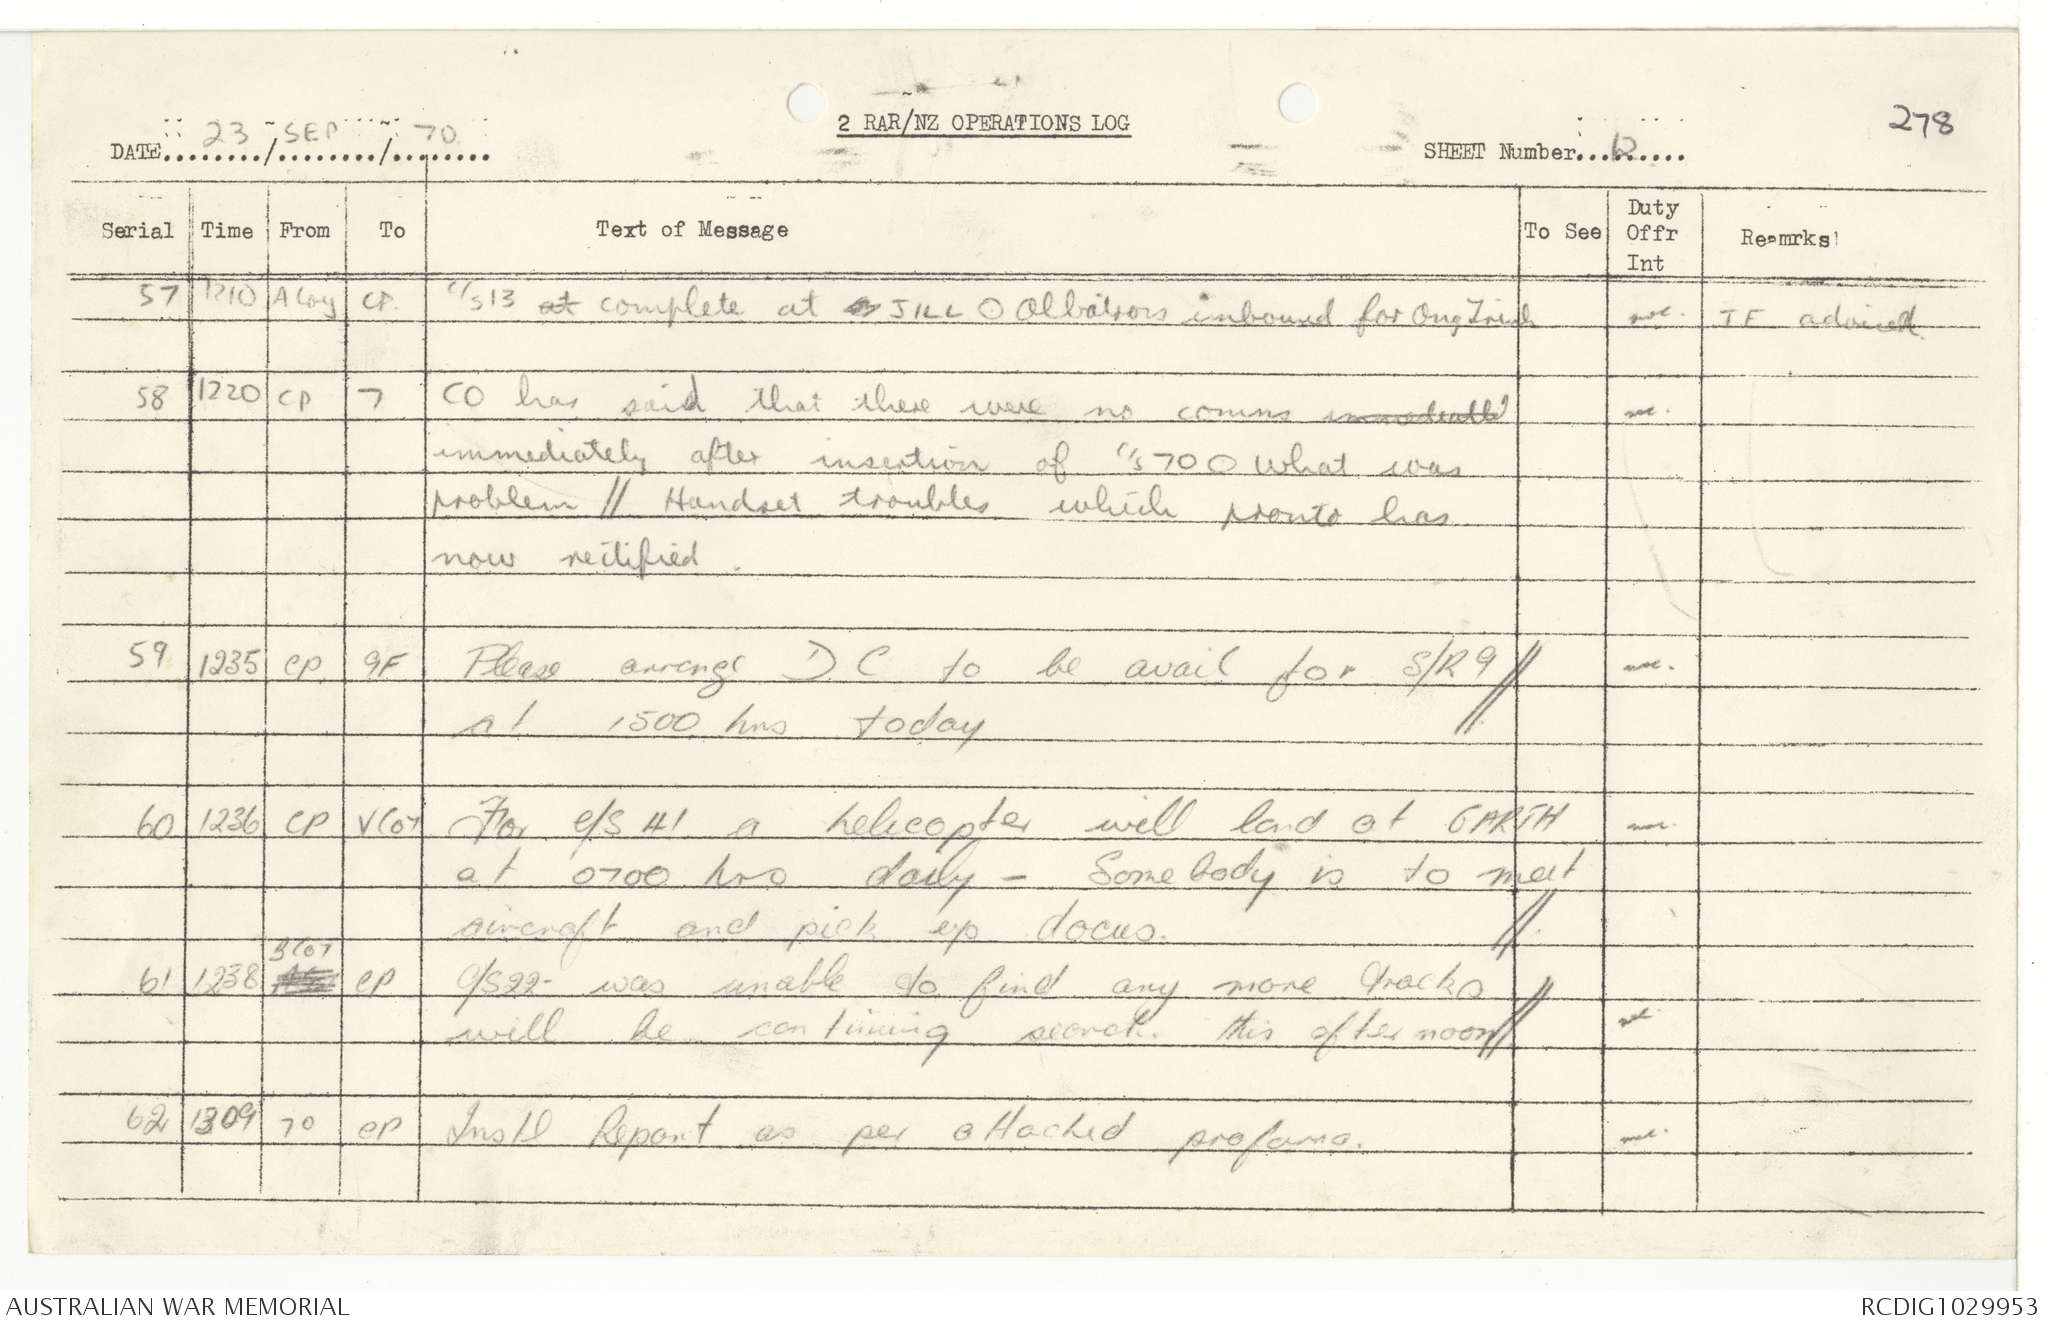 278
2 RAR/NZ OPERATIONS LOG
DATE 23 / SEP / 70
SHEET Number 12
Serial Time From To Text of Message To See Duty Offr Int Reamrks
57 1210 A Coy CP. C/S13 at complete at JILL O Albatross inbound for Ong Trinh JF advised.
58 1220 CP 7 CO has said that there were no comms
immediately after insertion of C/S 70 O What was
problem // Handset troubles which pronto has
now rectified.
59 1235 CP 9F Please arrange DC to be avail for S/R 9
at 1500 hrs today //
60 1236 CP V Coy For C/S 41 a helicopter will land at GARTH
at 0700 hrs daily - Somebody is to meet
aircraft and pick up docus. //
61 1238 B Coy CP C/S22- was unable to find any more tracks
will be continuing search. this afternoon //
62 1309 70 CP Instl Report as per attached proforma.
AUSTRALIAN WAR MEMORIAL
RCDIG1029953